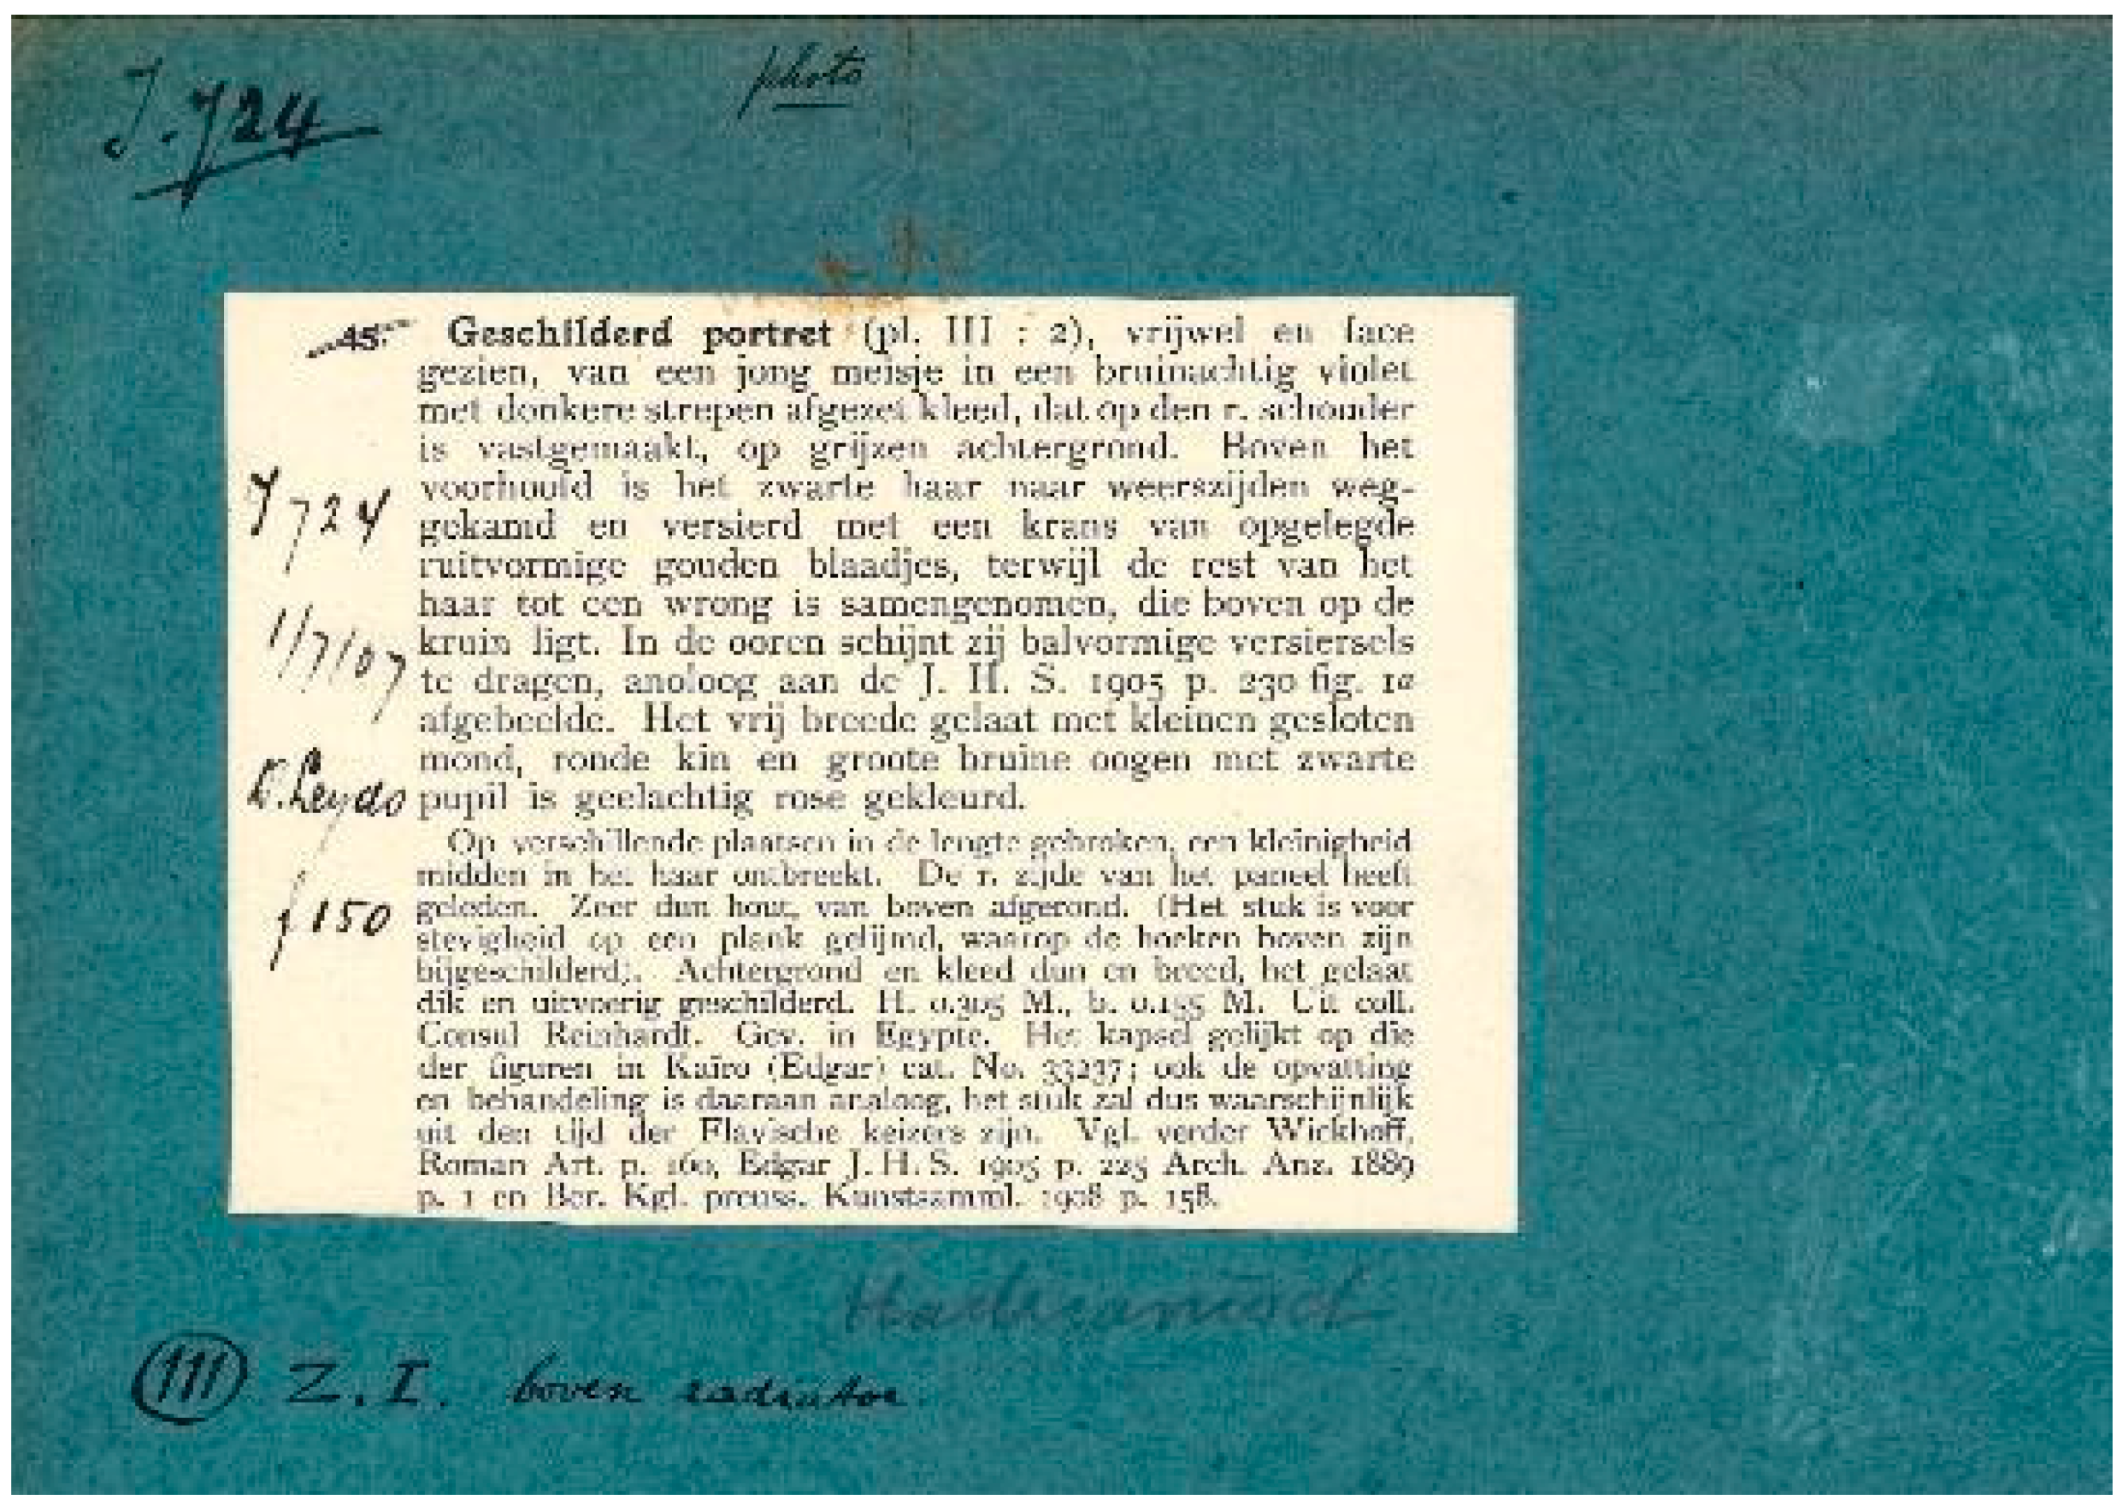 J. 724
photo
45. Geschilderd portret (pl. III : 2), vrijwel en face
gezien, van een jong meisje in een bruinachtig violet
met donkere strepen afgezet kleed, dat op den r. schouder
is vastgemaakt, op grijzen achtergrond. Boven het
voorhoofd is het zwarte haar naar weerszijden weg-
gekamd en versierd met een krans van opgelegde
ruitvormige gouden blaadjes, terwijl de rest van het
haar tot een wrong is samengenomen, die boven op de
kruin ligt. In de ooren schijnt zij balvormige versiersels
te dragen, anoloog aan de J. H. S. 1905 p. 230 fig. 1a
afgebeelde. Het vrij breede gelaat met kleinen gesloten
mond, ronde kin en groote bruine oogen met zwarte
pupil is geelachtig rose gekleurd.
Op verschillende plaatsen in de lengte gebroken, een kleinigheid
midden in het haar ontbreekt. De r. zijde van het paneel heeft
geleden. Zeer dun hout, van boven afgerond. (Het stuk is voor
stevigheid op een plank gelijmd, waarop de hoeken boven zijn
bijgeschilderd). Achtergrond en kleed dun en breed, het gelaat
dik en uitvoerig geschilderd. H. 0.305 M., b. 0.155 M. Uit coll.
Consul Reinhardt. Gev. in Egypte. Het kapsel gelijkt op die
der figuren in Kaïro (Edgar) cat. No. 33237; ook de opvatting
en behandeling is daaraan analoog, het stuk zal dus waarschijnlijk
uit den tijd der Flavische keizers zijn. Vgl. verder Wickhoff,
Roman Art. p. 160, Edgar J. H. S. 1905 p. 225 Arch. Anz. 1889
p. 1 en Ber. Kgl. preuss. Kunstsamml. 1908 p. 158.
J 724
1/7/07
D. Leyds
f 150
Hadrianisch
III Z. I. boven radiator.